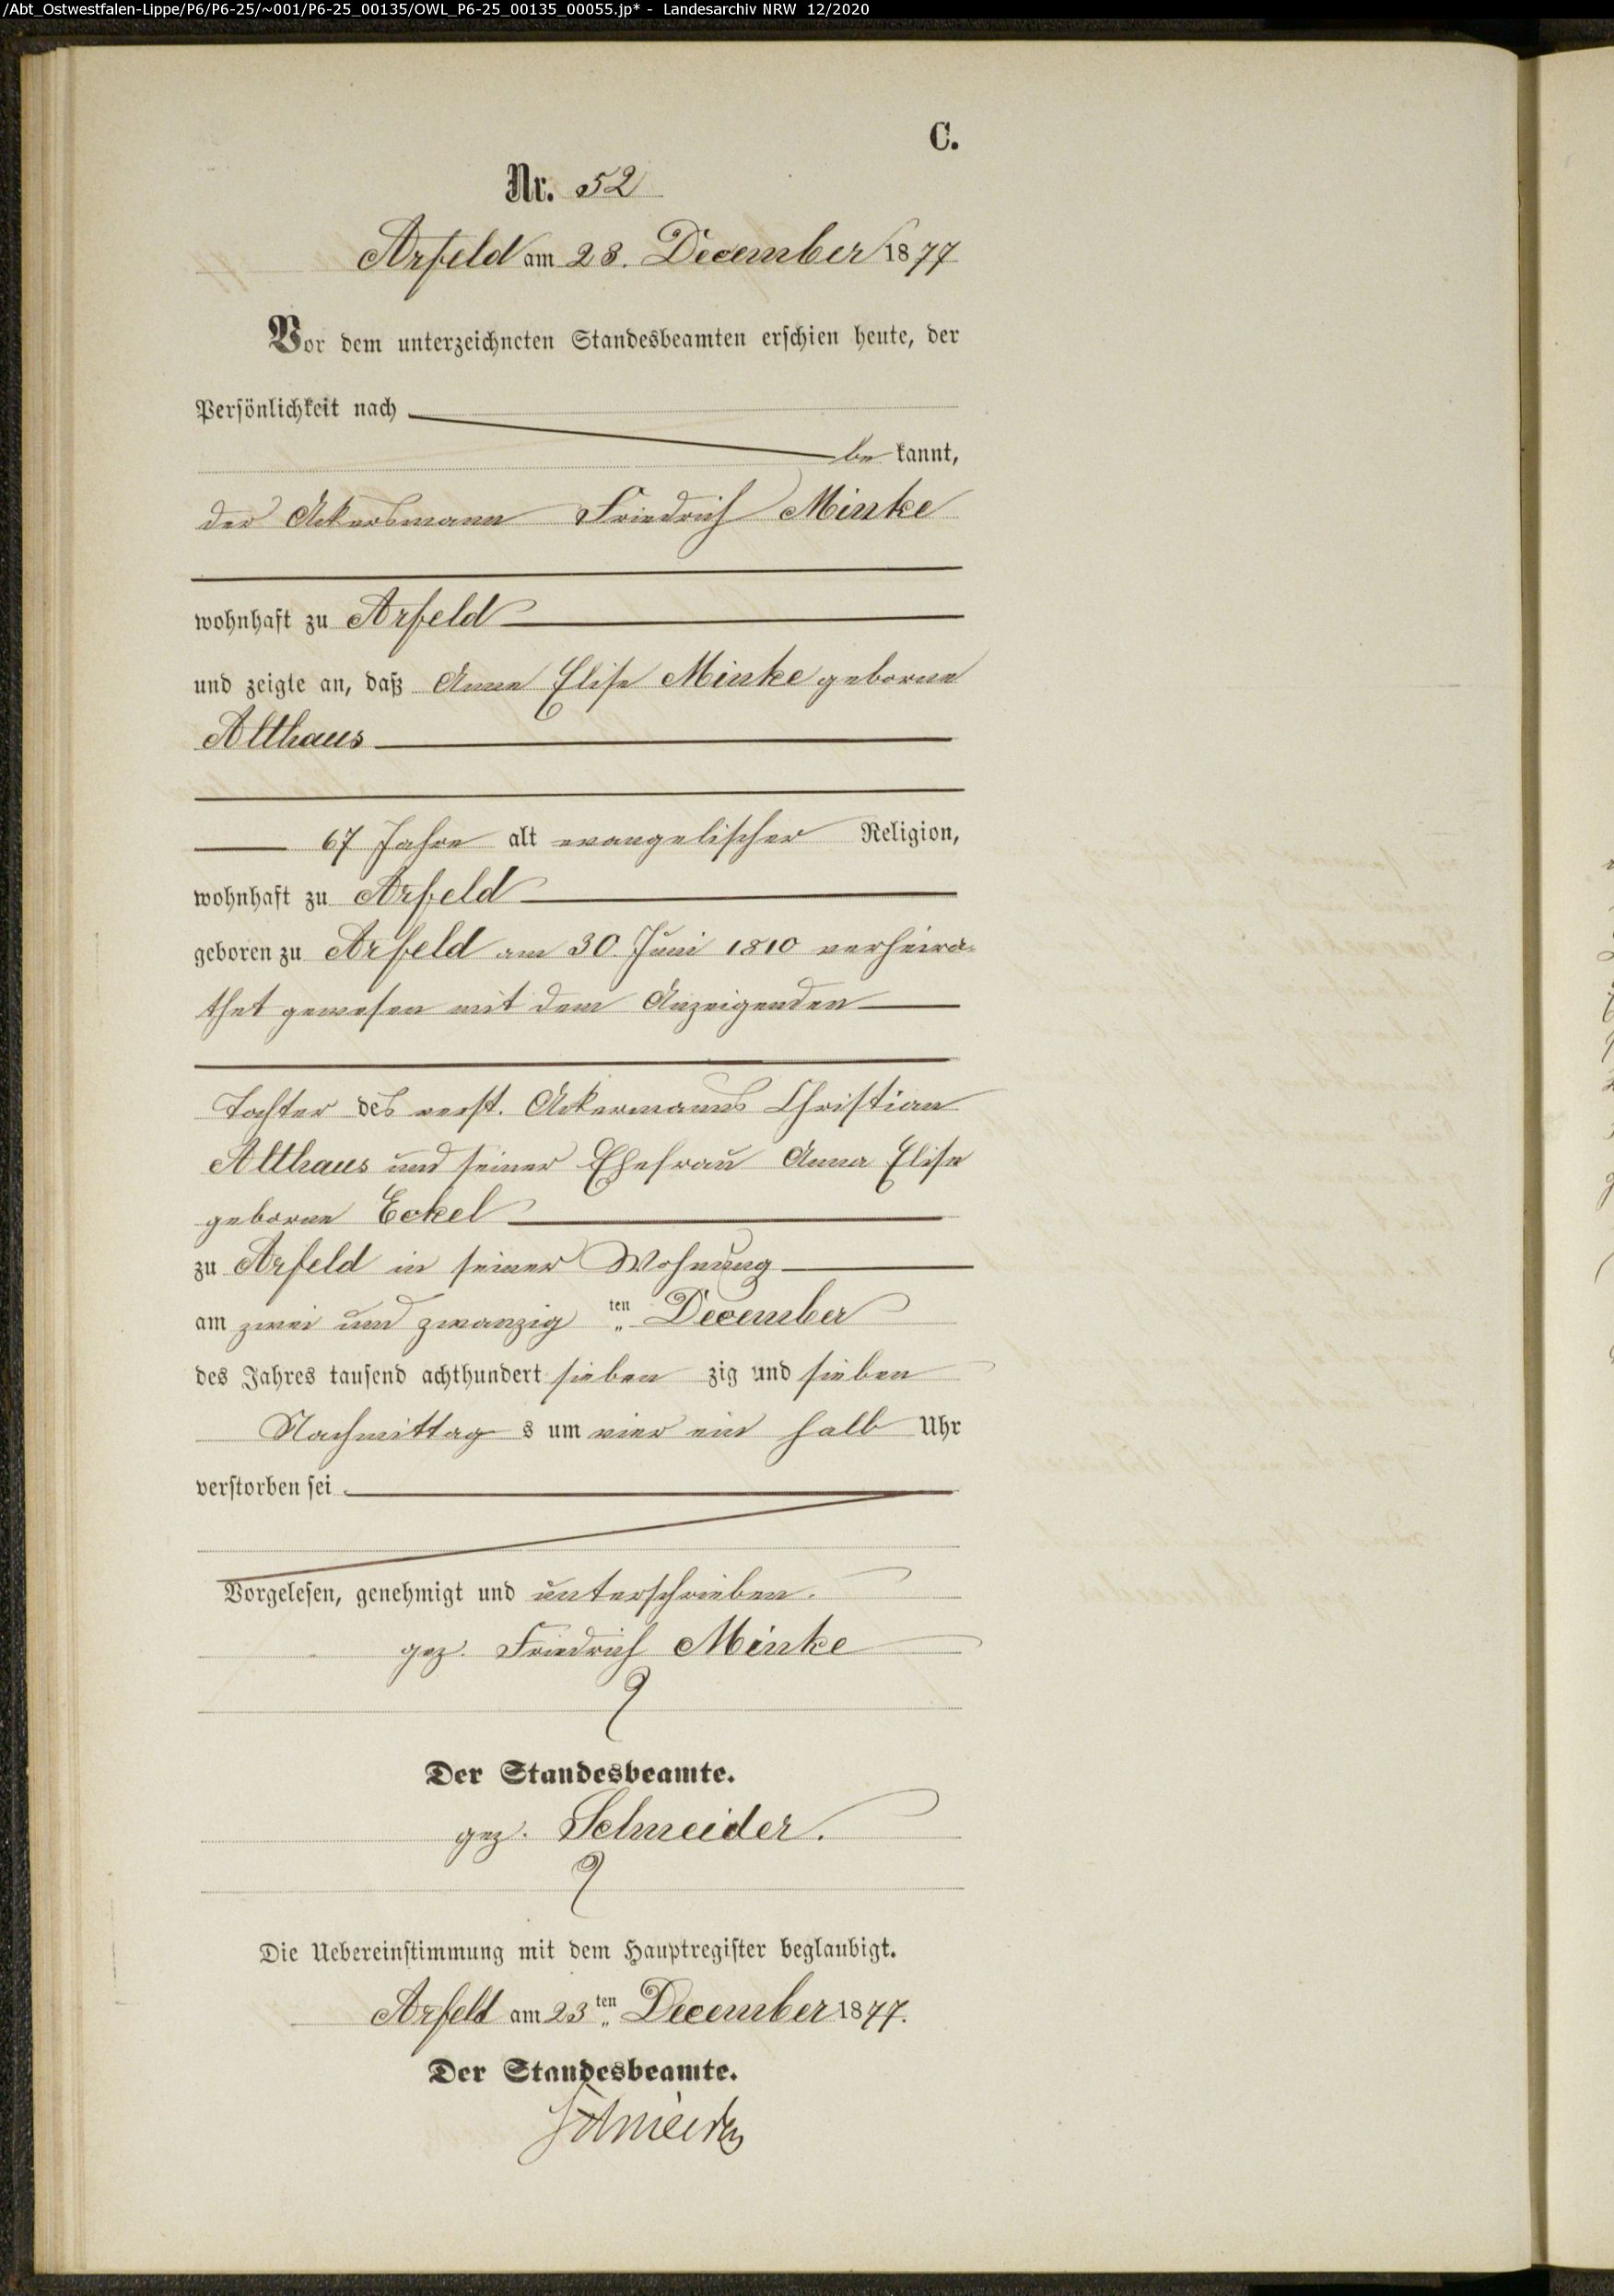 /Abt_Ostwestfalen-Lippe/P6/P6-25/~001/P6-25_00135/OWL_P6-25_00135_00055.jp* - Landesarchiv NRW 12/2020
C.
Nr. 52
Arfeld am 23. December 1877
Vor dem unterzeichneten Standesbeamten erschien heute, der
Persönlichkeit nach
be kannt,
der Ackersmann Friedrich Minke
wohnhaft zu Arfeld
und zeigte an, daß Anna Elise Minke geborne
Althaus
67 Jahre alt evangelischer Religion,
wohnhaft zu Arfeld
geboren zu Arfeld am 30. Juni 1810 verheira-
thet gewesen mit dem Anzeigenden
Tochter des verst. Ackermanns Christian
Althaus und seiner Ehefrau Anna Elise
geborne Eckel
zu Arfeld in seiner Wohnung
am zwei und zwanzig ten December
des Jahres tausend achthundert sieben zig und sieben
Nachmittag s um vier ein halb Uhr
verstorben sei
Vorgelesen, genehmigt und unterschrieben.
gez. Friedrich Minke
Der Standesbeamte.
gez. Schneider.
Die Uebereinstimmung mit dem Hauptregister beglaubigt.
Arfeld am 23ten December 1877.
Der Standesbeamte.
Schneider